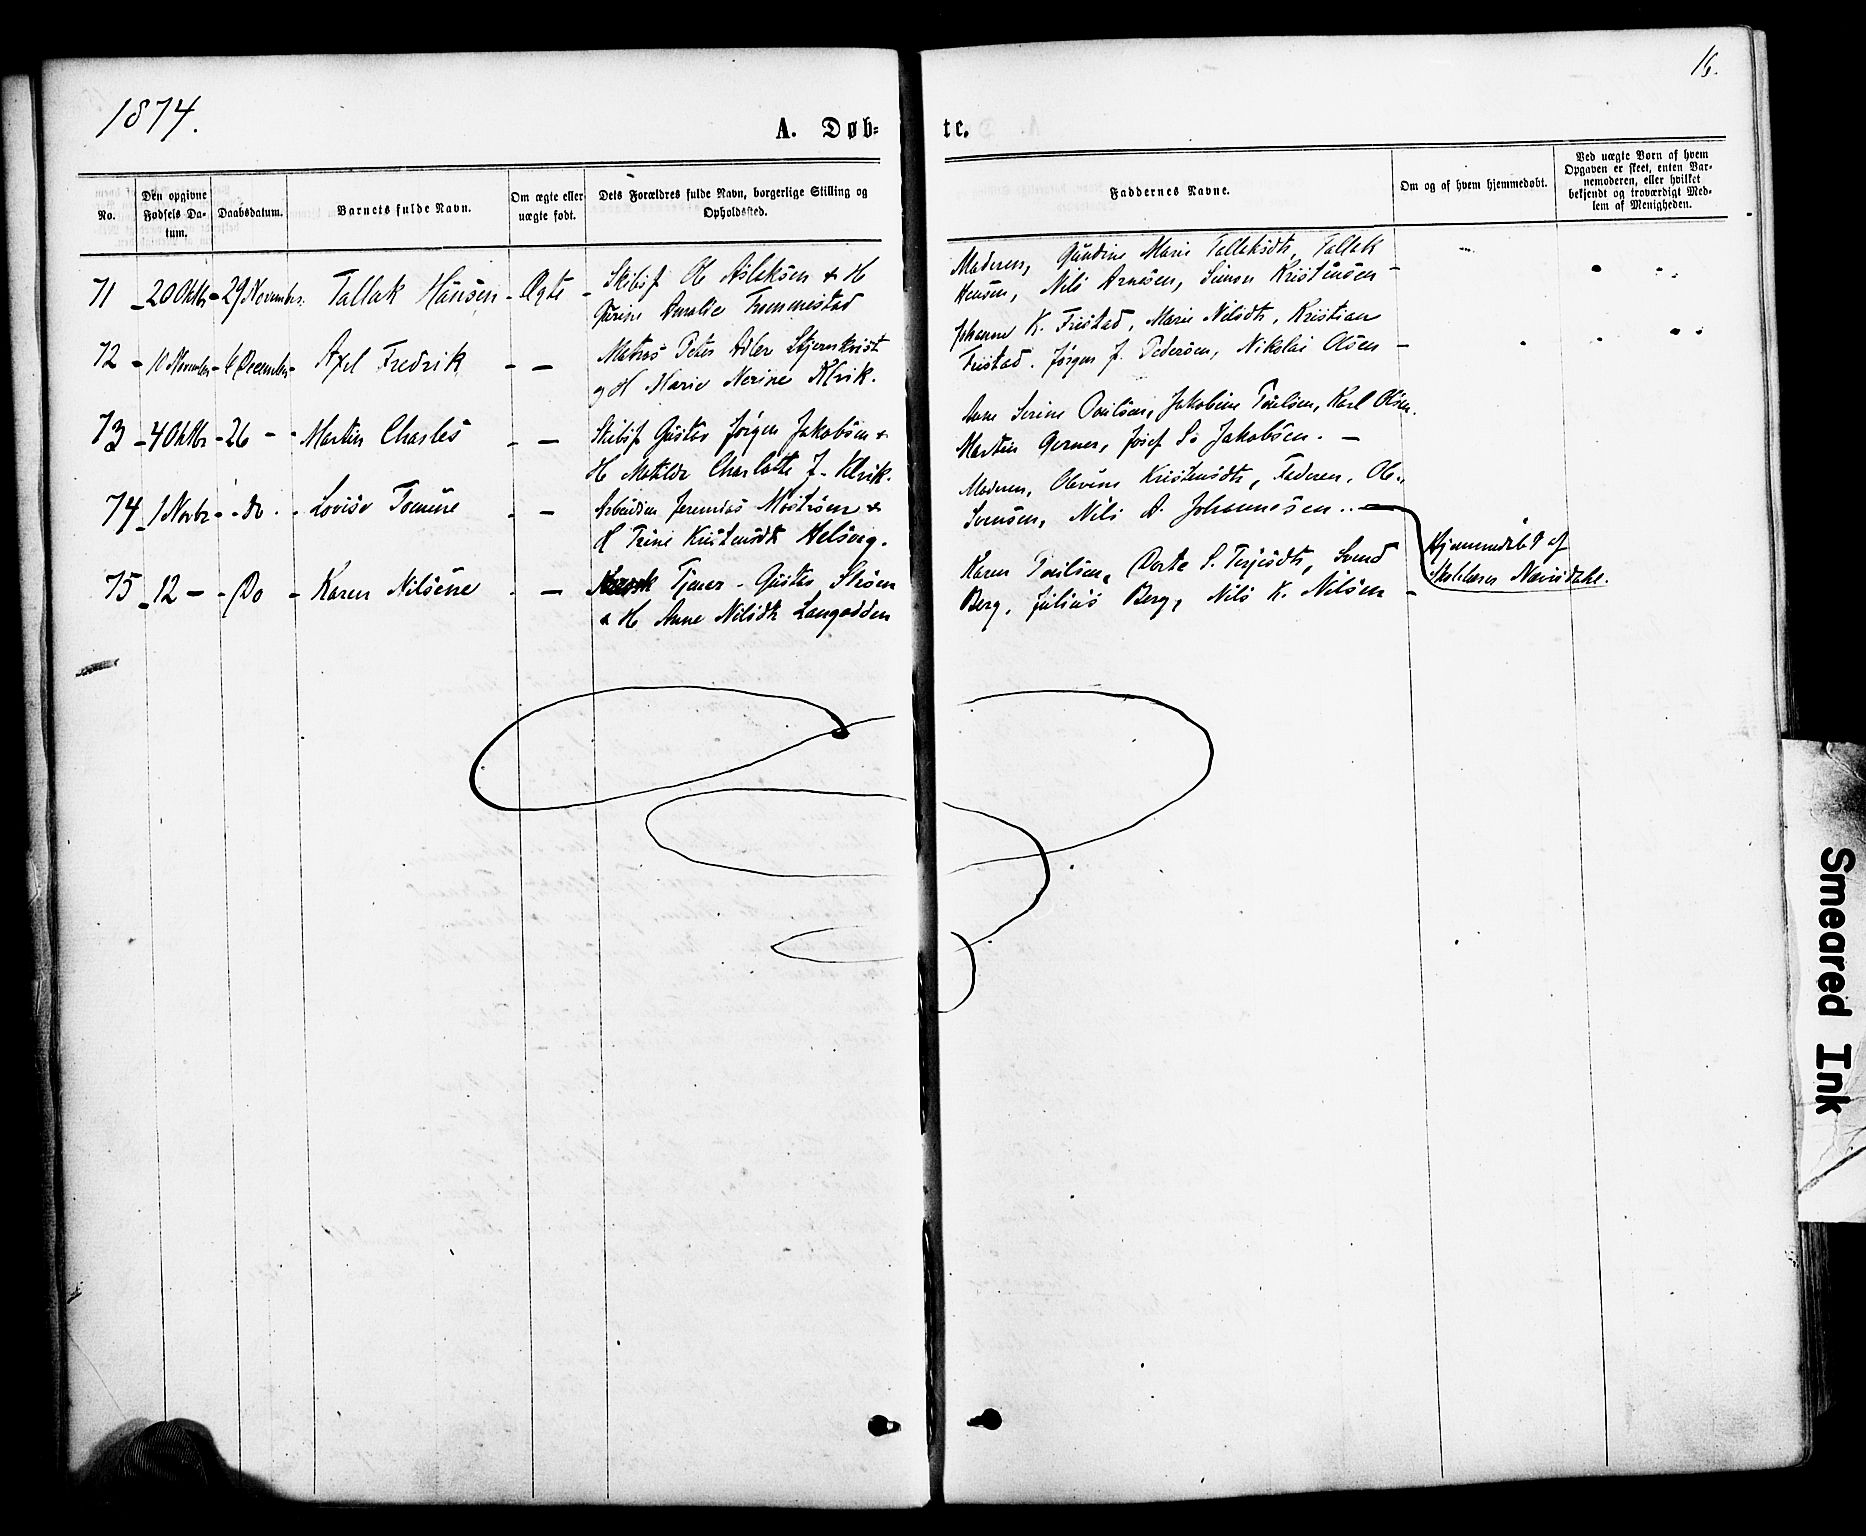 1874.
16.
A. Døb-
te.
No.
Den opgivne Fødsels Da-
tum.
Daabsdatum.
Barnets fulde Navn.
Om ægte eller
uægte født.
Dets Forældres fulde Navn, borgerlige Stilling og
Opholdssted.
Faddernes Navne.
Om og af hvem hjemmedøbt.
Ved uægte Børn af hvem
Opgaven er skeet, enten Bar-
nemoderen, eller hvilket
bekjendt og troværdigt Med-
lem af Menigheden.
71 - 20 Oktbr - 29 November. Tallak Hansen - Ægte - Skibsf Ol Aslaksen & H
Gurine Amalie Frommestad
Moderen, Gundine Marie Tallaksdtr, Tallak
Hansen, Nils Arnesen, Simon Kristensen -
72 - 11 November - 6 December - Axel Fredrik - - Matros Peter Adler Stjernkvist
og H Marie Nerine Klvik.
Johanne K. Fristad, Marie Nilsdtr, Kristian
Fristad. Jørgen J. Pedersen, Nikolai Olsen -
73 - 4 Oktbr - 26 - - Martin Charles - - Skibsf Gustav Jørgen Jakobsen &
H Matilde Charlotte J. Klvik.
Anne Serine Poulsen, Jakobine Poulsen, Karl Olsen.
Martin Gerner, Josef So Jakobsen. -
74 - 1 Novbr - - do - Lovise Tomine - - Jeremias &
H Trine Kristensdtr Helsvig.
Moderen, Olevine Kristensdtr, Faderen, Ole
Svensen, Nils A. Johannesen. -
75 - 12 - - Do - Karen Nilsine - - Tjener - Gustav Strøm
& H Anne Nilsdtr Langodden
Karen Poulsen, Dorte S. Terjesdtr, Svend
Berg, Julius Berg, Nils K. Nilsen -
Hjemmedøbt af
Skolelærer
Smeared Ink